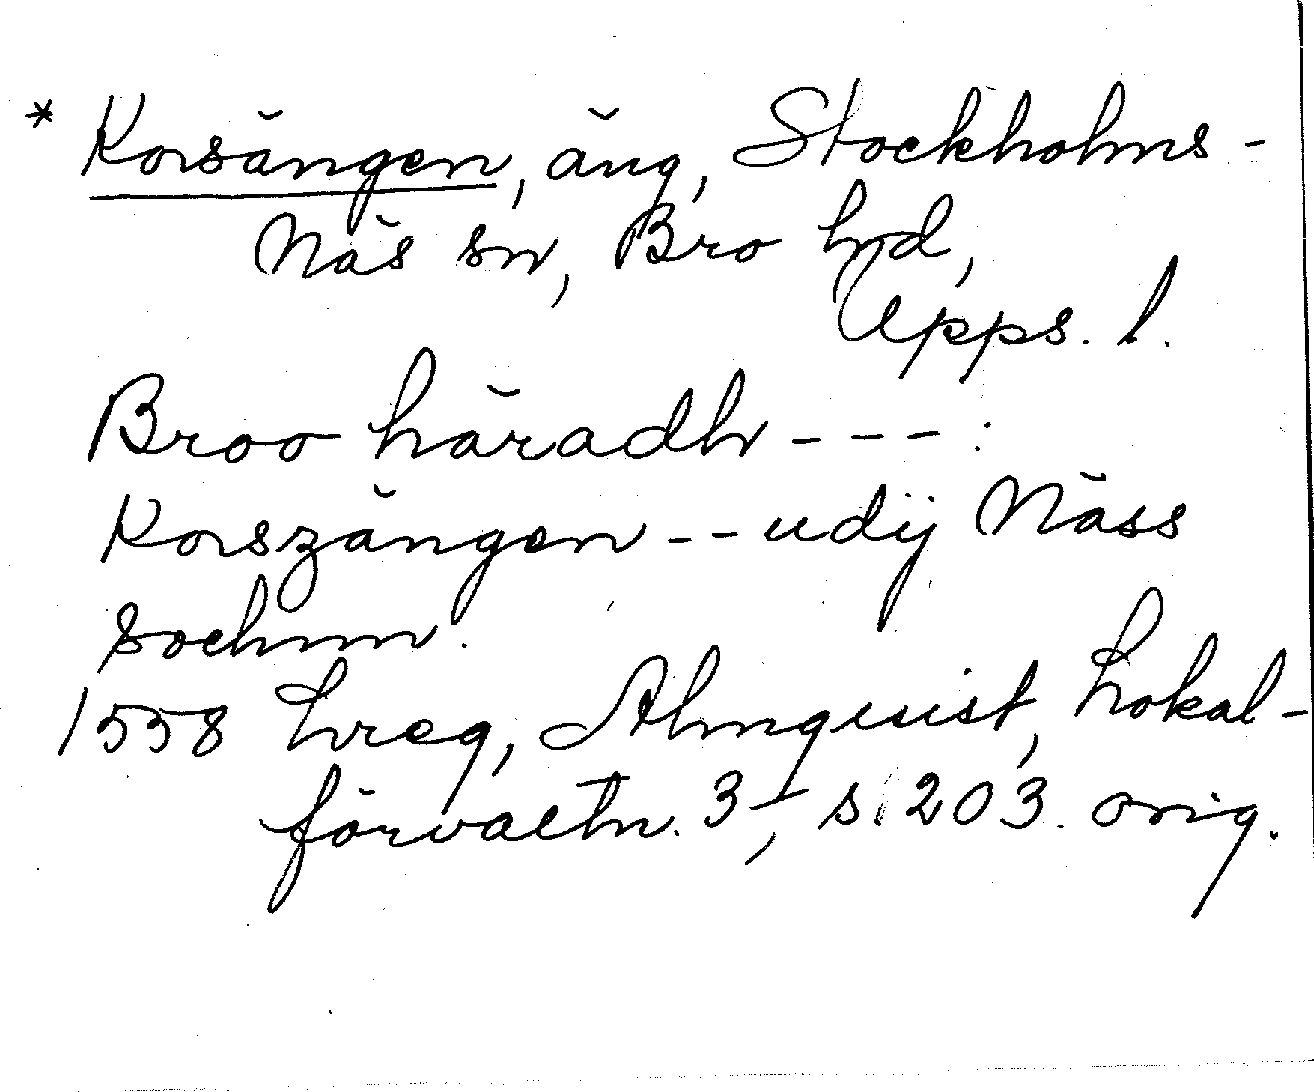 * Korsängen, äng, Stockholms-
Näs sn, Bro hd,
Upps. l.
Broo häradh - - - :
Korszängen - - udij Näss
sochnn.
1558 Lreg, Almquist, Lokal-
förvaltn. 3, s. 203. orig.